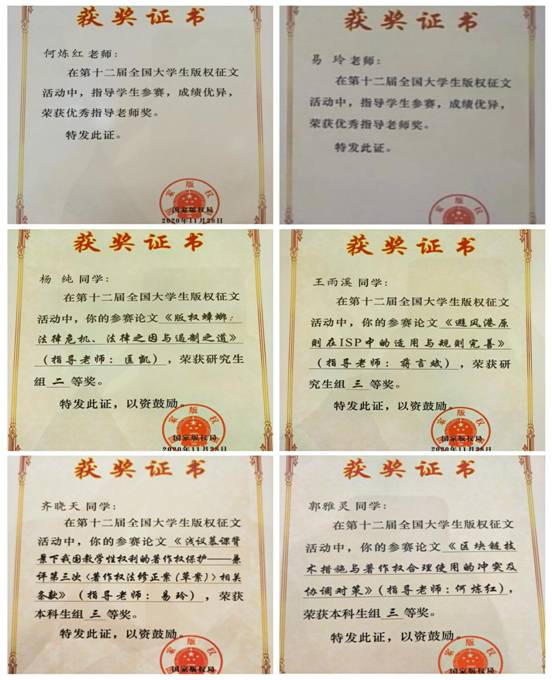 获奖证书
何炼红 老师：
在第十二届全国大学生版权征文
活动中，指导学生参赛，成绩优异，
荣获优秀指导老师奖。
特发此证。
国家版权局
2020年11月28日
获奖证书
易 玲 老师：
在第十二届全国大学生版权征文
活动中，指导学生参赛，成绩优异，
荣获优秀指导老师奖。
特发此证。
家版权
获奖证书
杨 纯 同学：
在第十二届全国大学生版权征文
活动中，你的参赛论文《版权蟑螂：
法律危机、法律之因与遏制之道》
（指导老师：匡凯），荣获研究生
组 二 等奖。
特发此证，以资鼓励。
国家版权局
2020年11月28日
获奖证书
王雨溪 同学：
在第十二届全国大学生版权征文
活动中，你的参赛论文《避风港原
则在ISP中的适用与规则完善》
（指导老师：蒋言斌），荣获研
究生组 三 等奖。
特发此证，以资鼓励。
国家版权局
2020年11月28日
获奖证书
齐晓天 同学：
在第十二届全国大学生版权征文
活动中，你的参赛论文《浅议慕课背
景下我国教学性权利的著作权保护——兼
评第三次〈著作权法修正案（草案）〉相关
条款》（指导老师：易玲），荣获
本科生组 三 等奖。
特发此证，以资鼓励。
国家版权局
获奖证书
郭雅灵 同学：
在第十二届全国大学生版权征文
活动中，你的参赛论文《区块链技
术措施与著作权合理使用的冲突及
协调对策》（指导老师：何炼红），
荣获本科生组 三 等奖。
特发此证，以资鼓励。
国家版权局